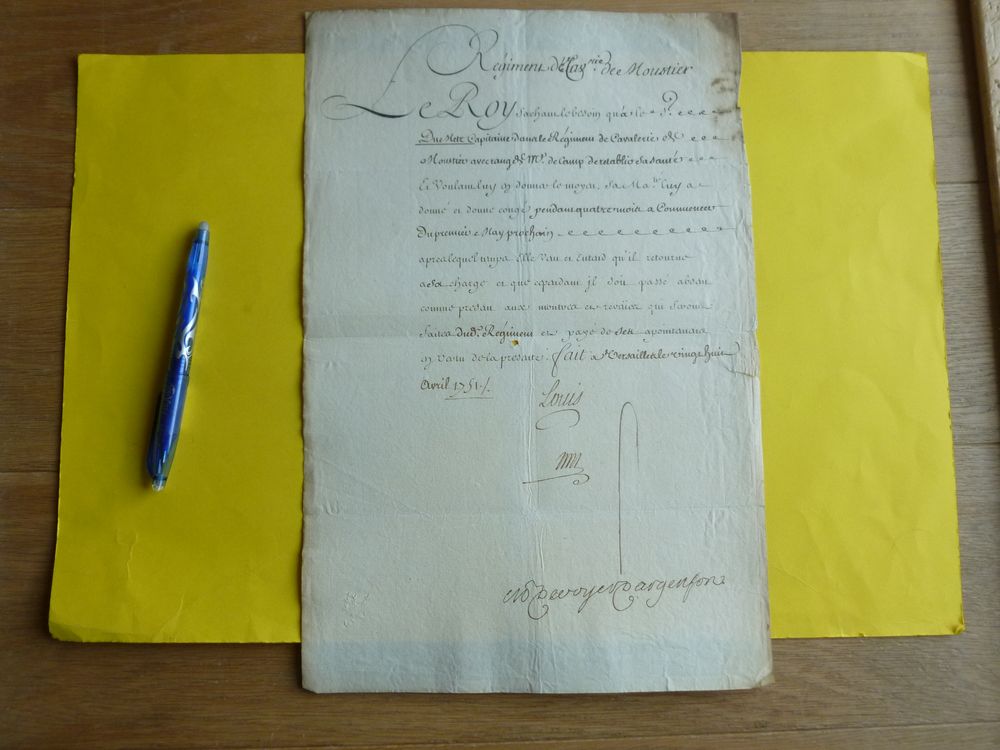 Régiment de Cav.rie de Moustier
Le Roy Sachant le besoin qu'a le S.r
Duc Capitaine dans le Régiment de Cavalerie de
Moustier avec rang de M.e de Camp de retablir sa santé
Et Voulant luy en donner le moyen, Sa Ma.té luy a
donné et donne congé pendant quatre mois a Commencer
Du premier May prochain
apres lequel temps Elle Veut et Entend qu'il retourne
a sa charge et que cependant jl soit passé absent
comme present aux montres et reveües qui seront
faites dud. Régiment et payé de ses apointemens
en Vertu de la presente. fait a Versailles le vingt huit
Avril 1751./.
Louis
M De voyer D'argenson